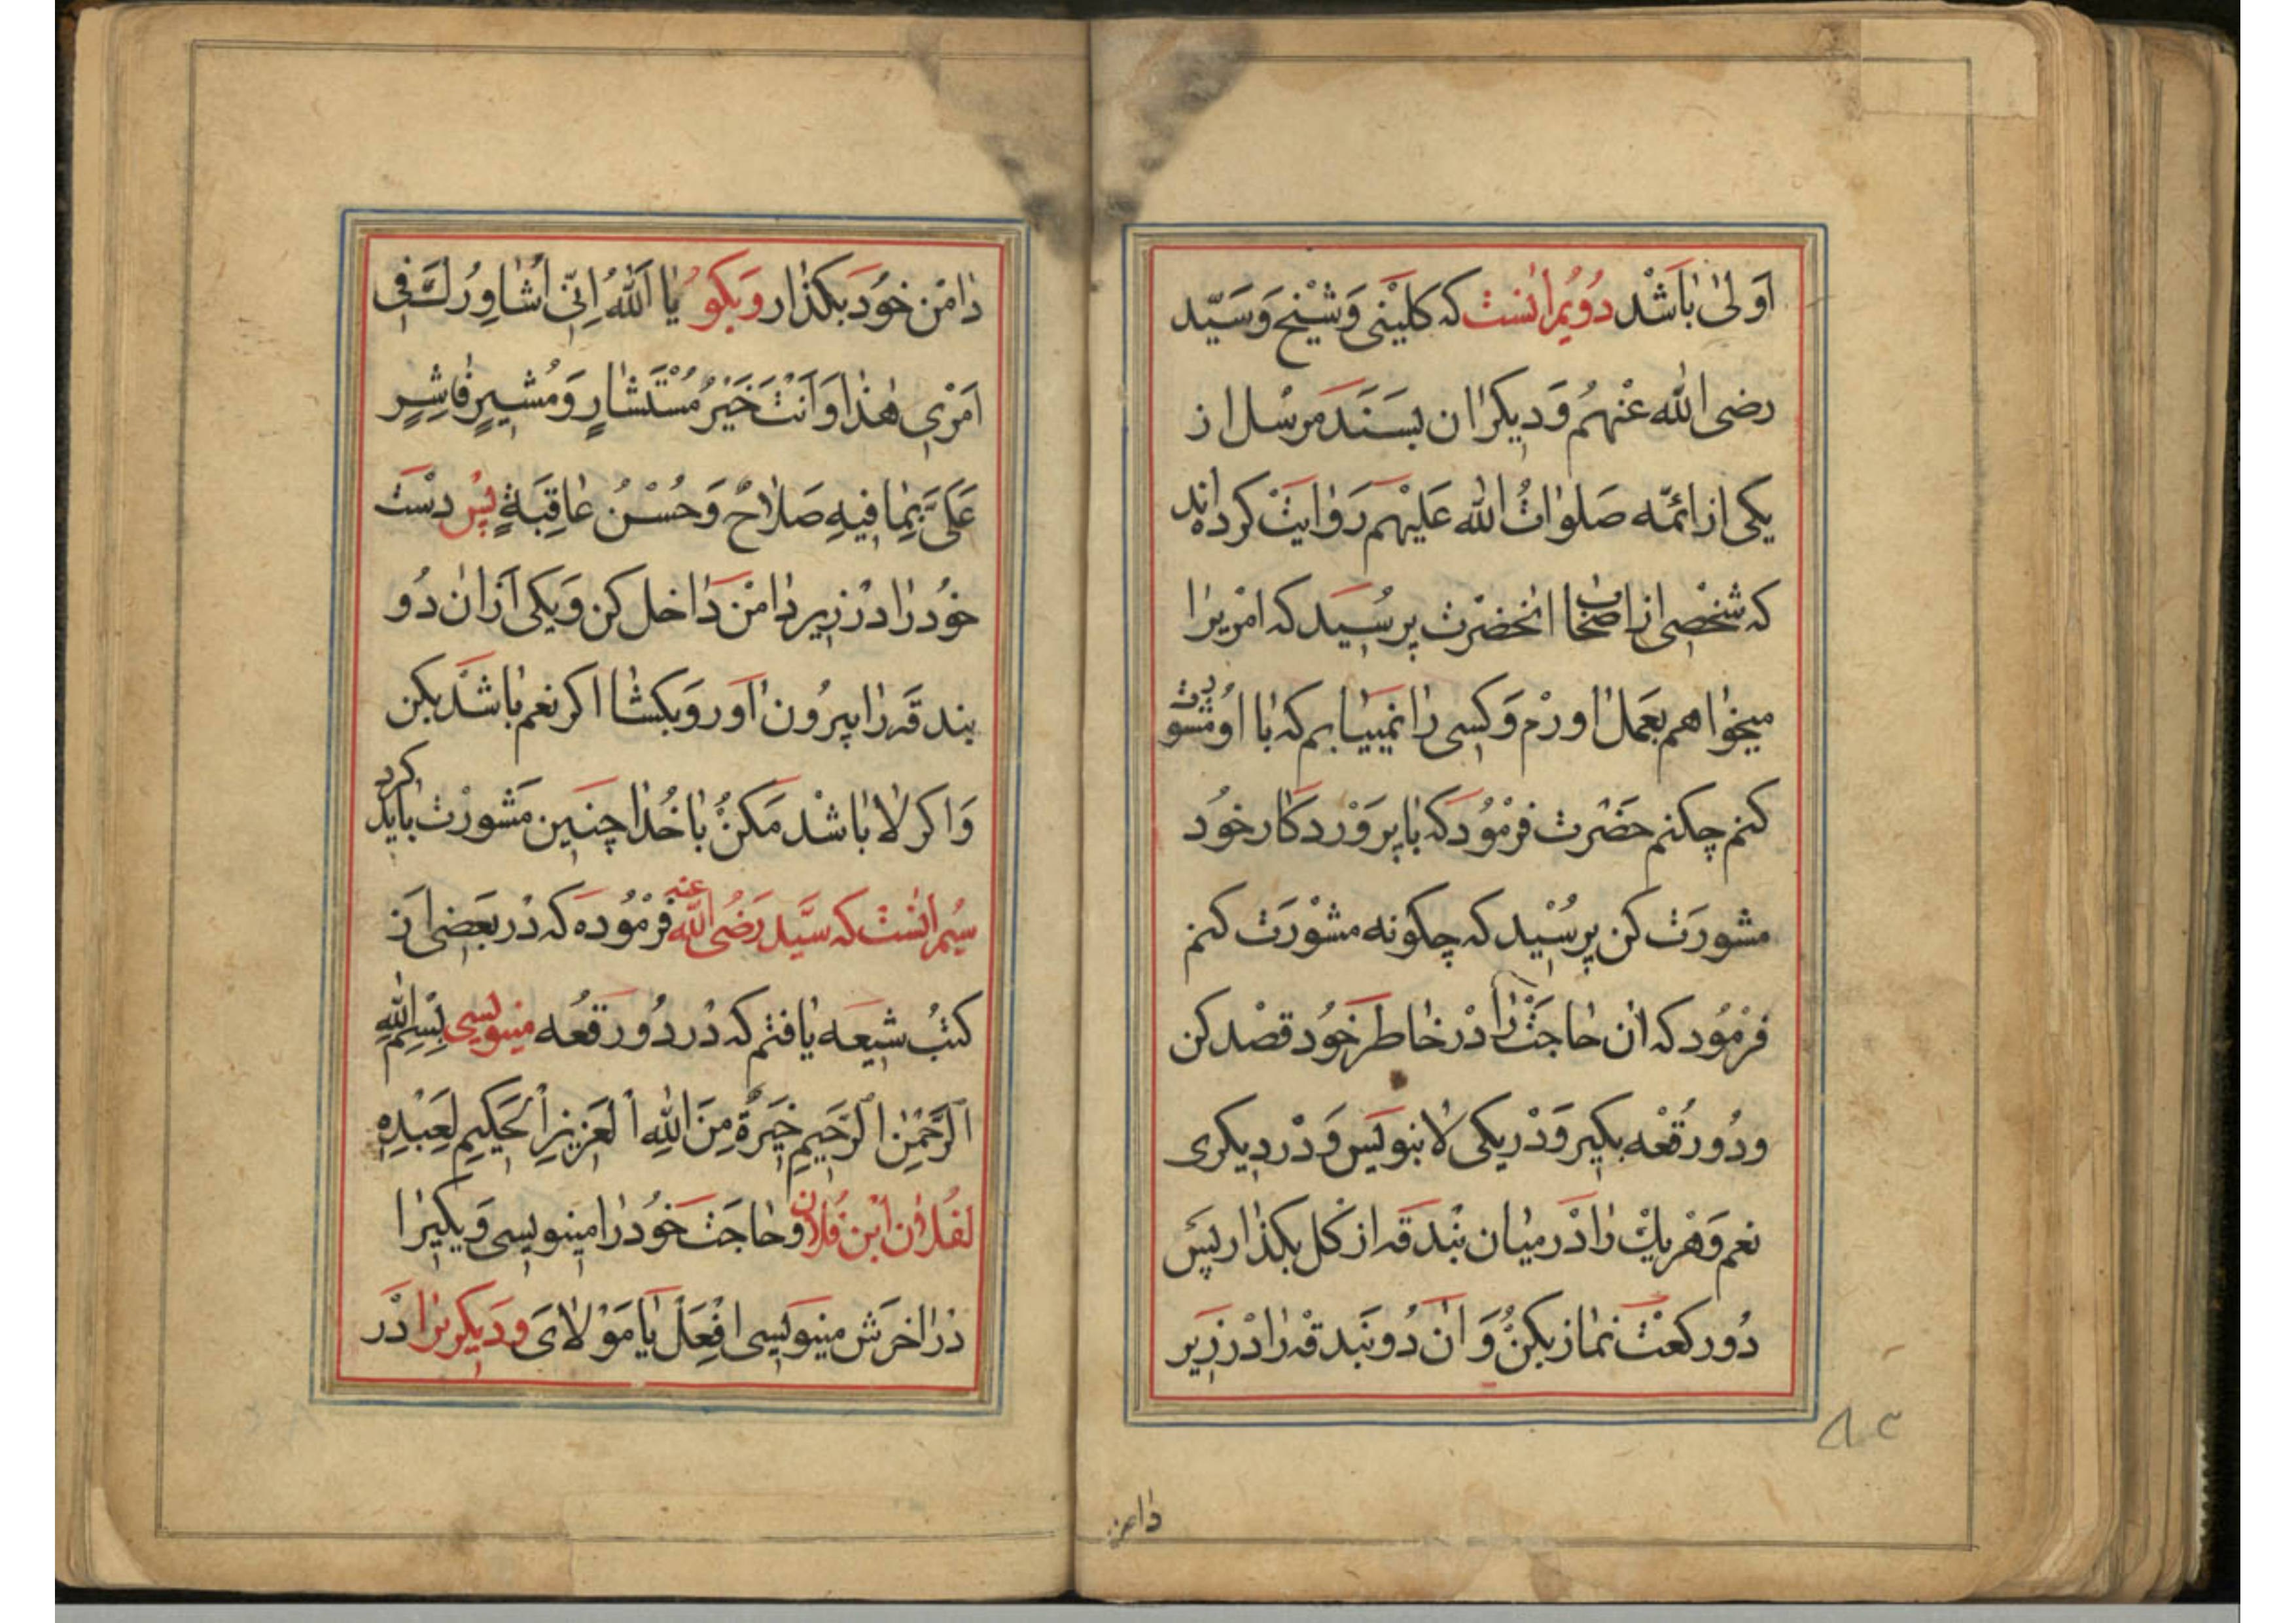 اَولىٰ بٰاشَدْ دُوُيُم اٰنست كه كلَيْنى وَشَيْخ وَسَيّد
رضى اللّٰه عنْهُم وَديكرٰان بسَنَد مرسْل از
يكى از ائمّه صَلوٰاتُ اللّٰه عَليْهم رَوٰايَتْ كرده‌اند
كه شخصْى از اصْحٰاب انحضْرت پرسُيَد كه امْريرٰا
ميخوٰاهم بعَمل اورَم وَكسِى رٰا نمييَابم كه بٰا اوُ مشورت
كنم چكنم حضَرت فرمُودكه بٰا پرَوَرْدكار خوُد
مشورَت كن پرسُيْد كه چكونه مشْورَت كنم
فرمُود كه اٰن حٰاجَتْ رٰا دْر خٰاطر خوُد قصْد كن
ودُو رُقعْه بكير وَدْر يكى لا بنويَس وَدْر ديكرى
نعم وَهْر يك رٰا دَر ميٰان بُنْدَقه از كل بكذٰار پَس
دُو ركعَتْ نمٰاز بكنُ وَ اٰن دُو بنَدقه رٰا دْر زيَر
دٰامن
دٰامْن خوُد بكذٰار وَبكو يٰا اَللّٰهُ اِنّى اُشٰاوِرُكَ فى
اَمْرِى هٰذٰا وَاَنْتَ خَيْرُ مُسْتَشٰارٍ وَمُشيرٍ فَاَشِرْ
عَلَىَّ بِمٰا فيهِ صَلٰاحٌ وَحُسْنُ عٰاقِبَةٍ پس دسْت
خوُد رٰا دْر زير دٰامْن دٰاخل كن وَيكى اَزان دُو
بندقَه رٰا بيرُون اٰوَر وَبكشٰا اكر نعم بٰاشَد بكن
وَاكر لا بٰاشْد مَكنُ بٰا خُدٰا چنيَن مَشورْت بٰايد كرد
سيُم اٰنسَت كه سيَّد رَضُى اللّٰه عنه فرمُوده كه دْر بعَضى از
كتبُ شيعَه يٰافتم كه دْر دُو رَقعُه مينويسى بِسْمِ اللّٰهِ
اَلرَّحْمٰنِ اَلرَّحيمِ خِيَرَةٌ مِنَ اللّٰهِ اَلعَزيزِ اَلحَكيمِ لِعَبْدِهِ
لفُلاٰن اْبن فلُاٰن وحٰاجَت خوُد رٰا مينويسى وَيكيرٰا
دْر اٰخرَش مينويَسى افْعَلْ يٰا مَوْلاٰىَ وديكريرٰا دَر